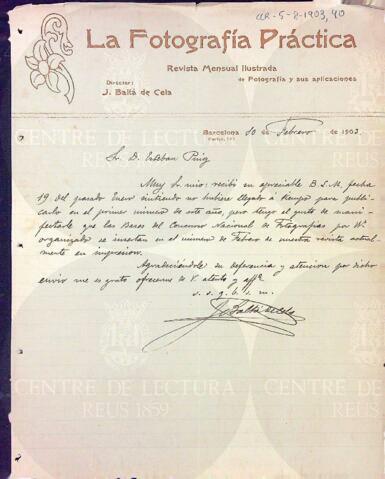 CLR-5-2-1903,40
La Fotografía Práctica
Revista Mensual Ilustrada
Director:
de Fotografía y sus aplicaciones
J. Baltá de Cela
Barcelona 10 de Febrero de 1903.
Sr. D. Esteban Puig
Muy Sr. mio: recibi su apreciable B. S. M. fecha
19 del pasado Enero sintiendo no hubiere llegado á tiempo para publi-
carlo en el primer número de este año, pero tengo el gusto de mani-
festarle que las Bases del Concurso Nacional de Fotografías por V.
organizado se insertan en el número de Febrero de nuestra revista actual-
mente en impresión.
Agradeciéndole su deferencia y atencion por dicho
envio me es grato ofrecerme de V. atento y affº
s. s. q. b. s. m.
J. Baltá de Cela
CENTRE DE LECTURA
REUS 1859